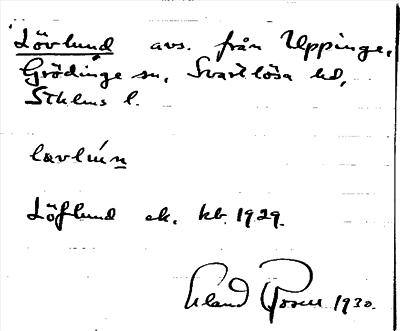 Lövlund avs. från Uppinge,
Grödinge sn, Svartlösa hd,
Sthlms l.
lœvlún
Löflund ek. kb. 1929.
Erland Rosell 1930.